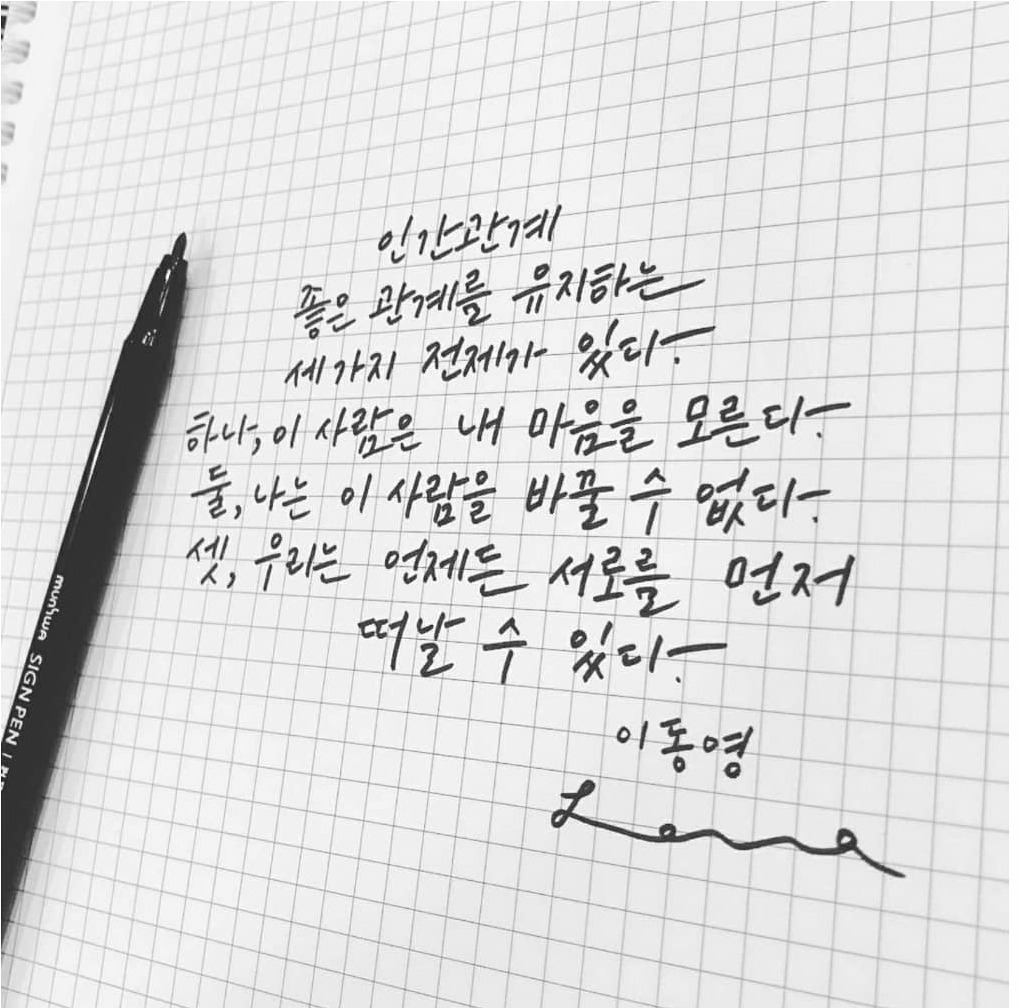 인간관계
좋은 관계를 유지하는
세가지 전제가 있다.
하나, 이 사람은 내 마음을 모른다.
둘, 나는 이 사람을 바꿀 수 없다.
셋, 우리는 언제든 서로를 먼저
떠날 수 있다.
이동영
Lena
munhwa SIGN PEN |